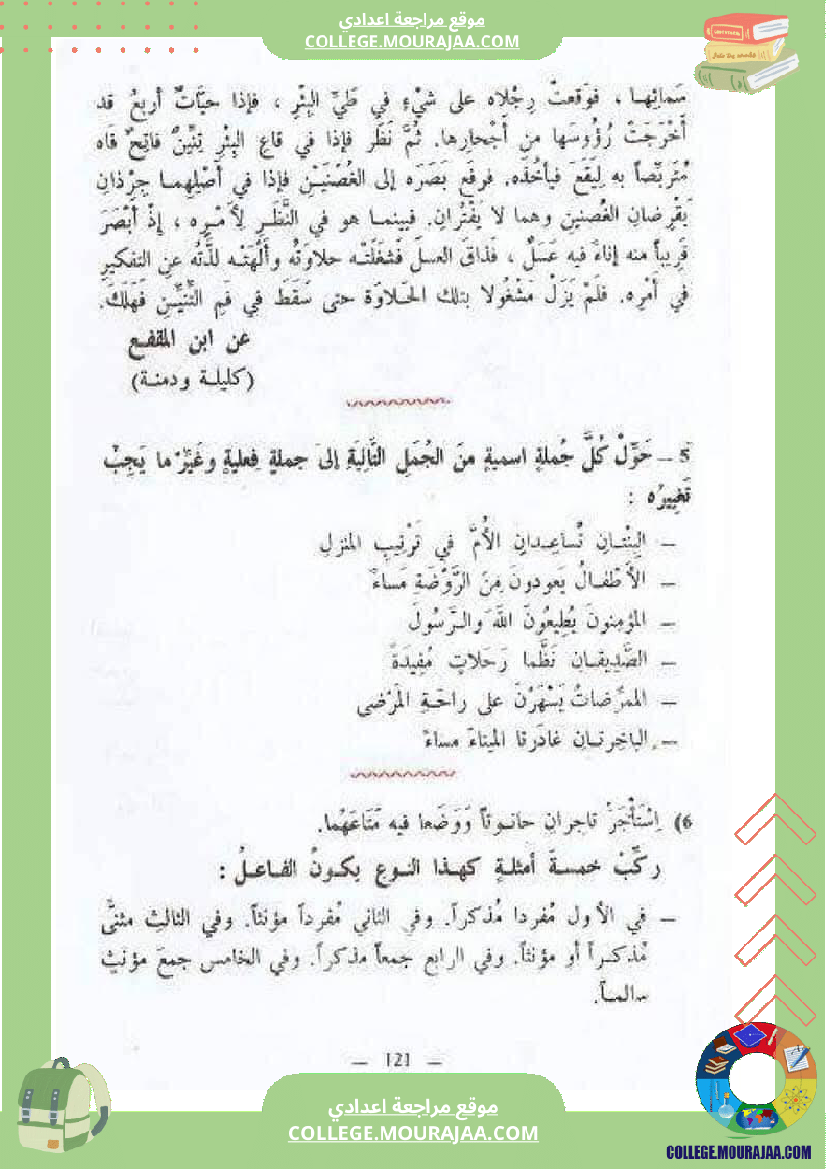 موقع مراجعة اعدادي
COLLEGE.MOURAJAA.COM
سَمائِهـا ، فوَقعتْ رِجْلاه على شيْءٍ في طَيِّ البِئْرِ ، فإذا حيَّاتٌ أربعُ قد
أَخْرَجَتْ رُؤُوسَها من أَجْحارِها. ثُمَّ نَظَر فإذا في قاعِ البِئْرِ تِنِّينٌ فاتِحٌ فَاه
مُتَرَبِّصاً به لِيَقَعَ فيأخُذَه. فرفَع بَصَرَه إلى الغُصْنَيْـنِ فإذا في أصْلِهِمـا جِرْذانِ
يَقْرِضانِ الغُصنينِ وهما لا يَفْتُرانِ. فبينمـا هو في النَّظَـرِ لِأَمْـرِه ، إِذْ أَبْصَرَ
قَرِيباً منه إناءً فيه عَسَلٌ ، فَذاقَ العسلَ فَشغَلَتْـه حلاوَتُه وأَلْهَتْـه لذَّتُه عنِ التفكيرِ
في أمْرِه. فلَمْ يَزَلْ مَشْغُولا بتلك الحَـلاوَة حتى سَقطَ في فَمِ التِّنِّيـنِ فَهَلَكَ.
عن ابن المقفـع
(كليلـة ودمنـة)
5 – حَوِّلْ كُلَّ جُملةٍ اسميةٍ منَ الجُمَلِ التَّالِيَةِ إلىَ جملةٍ فِعليةٍ وغَيِّرْ ما يَجِبُ
تَغْيِيرُه :
– البِنْتـانِ تُساعِـدانِ الأُمَّ في تَرْتِيبِ المنزلِ
– الأطْفـالُ يَعودونَ مِنَ الرَّوْضَةِ مَساءً
– المؤمِنونَ يُطِيعُونَ اللَّهَ والرَّسُولَ
– الصَّدِيقـانِ نَظَّما رَحَلاتٍ مُفِيدَةً
– الممرِّضاتُ يَسْهَرْنَ على راحَـةِ المَرْضى
– الباخِرتـانِ غادَرتا الميناءَ مساءً
6) اِسْتَأْجَرَ تاجرانِ حانـوتاً وَوَضَعا فيه مَتَاعَهُما.
ركِّبْ خمسـةَ أمثلـةٍ كهـذا النـوعِ يكـونُ الفـاعـلُ :
– في الأول مُفردا مُذكراً. وفي الثاني مُفرداً مؤنثاً. وفي الثالثِ مثنىً
مُذكـراً أو مؤنثاً. وفي الرابع جمعاً مذكراً. وفي الخامس جمعَ مؤنثٍ
سالمـاً.
— 121 —
موقع مراجعة اعدادي
COLLEGE.MOURAJAA.COM
COLLEGE.MOURAJAA.COM